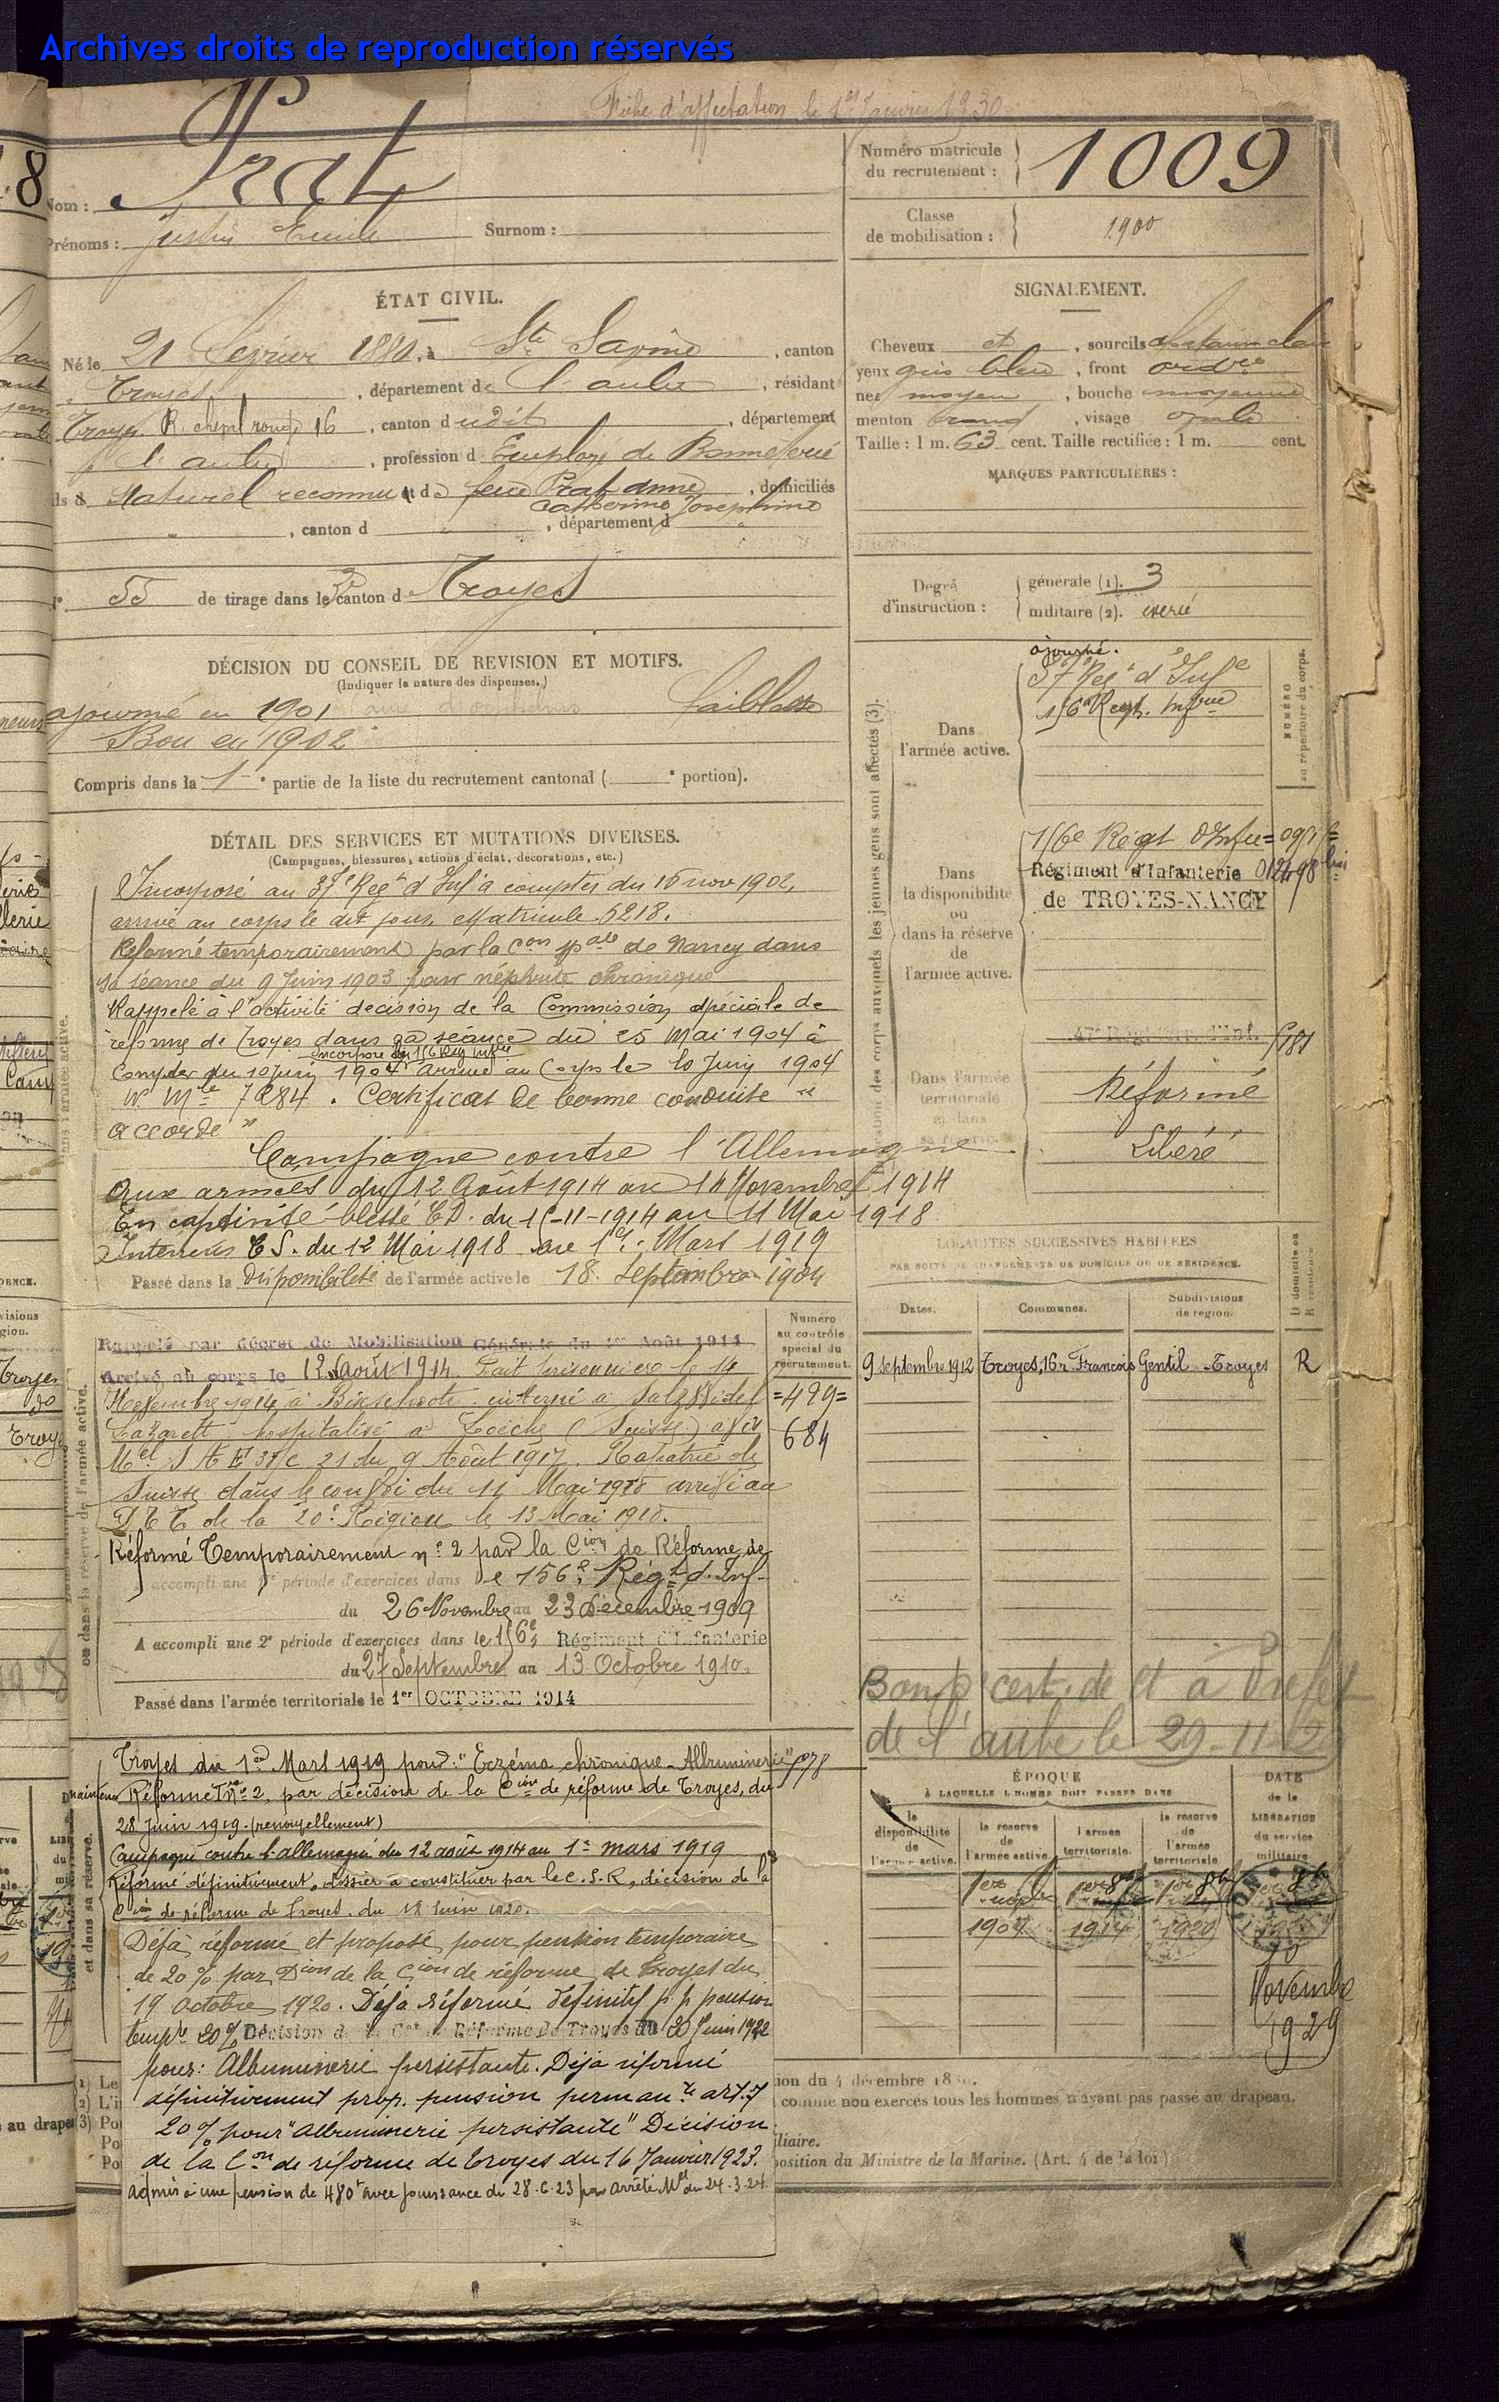 Archives droits de reproduction réservés
Fiche d'affectation le 1er Janvier 1930
Nom : Prat
Prénoms : Justin Emile Surnom :
Numéro matricule du recrutement : 1009
Classe de mobilisation : 1900
ÉTAT CIVIL.
Né le 21 Février 1880, à Ste Savine, canton
Troyes, département de l'aube, résidant
Troyes R. 16, canton dudit, département
de l'aube, profession d Employé de Bonneterie
fils de Naturel reconnu et de feue Prat Anne
Catherine Joséphine, domiciliés
, canton d , département d
N° 55 de tirage dans le 3e canton d Troyes
SIGNALEMENT.
Cheveux et , sourcils chatain clair
yeux gris bleu , front ordre
nez moyen , bouche moyenne
menton rond , visage ovale
Taille : 1 m. 63 cent. Taille rectifiée : 1 m. cent.
MARQUES PARTICULIÈRES :
Degré d'instruction : générale (1). 3
militaire (2). exercé
DÉCISION DU CONSEIL DE REVISION ET MOTIFS.
(Indiquer la nature des dispenses.)
ajourné en 1901 faiblesse
Bon en 1902
Compris dans la 1e partie de la liste du recrutement cantonal ( e portion).
DÉTAIL DES SERVICES ET MUTATIONS DIVERSES.
(Campagnes, blessures, actions d'éclat, décorations, etc.)
Incorporé au 37e Regt d'Inf à compter du 16 nov 1902,
arrivé au corps le dit jour. Matricule 5218.
Réformé temporairement par la Con spale de Nancy dans
sa séance du 9 Juin 1903 pour néphrite chronique
Rappelé à l'activité décision de la Commission spéciale de
réforme de Troyes dans sa séance du 25 Mai 1904 à
incorporé au 156 Rég infrie
compter du 10 juin 1904 arrivé au Corps le 10 Juin 1904
No Mle 7284. Certificat de bonne conduite "
accordé"
Campagne contre l'Allemagne
Aux armées du 12 Août 1914 au 14 Novembre 1914
En captivité blessé CD. du 15-11-1914 au 11 Mai 1918
Interieur CS. du 12 Mai 1918 au 1er Mars 1919
Passé dans la disponibilité de l'armée active le 18 septembre 1904
Rappelé par décret de Mobilisation Générale du 1er Août 1914
Arrivé au corps le 12 Août 1914. Fait prisonnier le 14
Novembre 1914 à Bixschoote interné à Salzwedel
Lazarett hospitalisé à Loèche (Suisse) avis
Mel 21 du 9 Août 1917. Rapatrié de
Suisse dans le convoi du 11 Mai 1918 arrivé au
de la 20e Région le 13 Mai 1918.
Réformé Temporairement n° 2 par la Cion de Réforme de
A accompli une 1e période d'exercices dans le 156e Régt d'Inf
du 26 Novembre au 23 Décembre 1909
A accompli une 2e période d'exercices dans le 156e Régiment d'Infanterie
du 27 Septembre au 13 Octobre 1910
Passé dans l'armée territoriale le 1er OCTOBRE 1914
Numéro au contrôle spécial du recrutement.
=499=
684
Troyes du 1er Mars 1919 pour : "Eczéma chronique - Albuminerie"
maintenu Réformé T n° 2, par décision de la Cion de réforme de Troyes, du
28 juin 1919. (renouvellement)
Campagne contre l'allemagne du 12 août 1914 au 1er mars 1919
Réformé définitivement, dossier à constituer par le C.S.R, décision de la
Cion de réforme de Troyes. du 18 Juin 1920.
Déjà réformé et proposé pour pension temporaire
de 20% par Dion de la Cion de réforme de Troyes du
19 octobre 1920. Déjà réformé définitif p. p pension
tempre 20% Décision de la Con de Réforme De Troyes du 20 Juin 1922
pour : Albuminerie persistante. Déjà réformé
définitivement prop. pension permante art. 7
20% pour "Albuminerie persistante" Décision
de la Con de réforme de Troyes du 16 Janvier 1923.
admis à une pension de 480f avec jouissance du 28.6.23 par arrêté Mel du 24.3.24.
Dans l'armée active.
ajourné.
37e Regt d'Infie
156e Regt. Infrie
Dans la disponibilité ou dans la réserve de l'armée active.
156e Régt d'Infie
Régiment d'Infanterie 012498 bis
de TROYES-NANCY
Dans l'armée territoriale et dans sa réserve.
Réformé
Libéré
NUMÉRO au répertoire du corps.
LOCALITÉS SUCCESSIVES HABITÉES
PAR SUITE DE CHANGEMENTS DE DOMICILE OU DE RÉSIDENCE.
Dates. Communes. Subdivisions de région. D domicile ou R résidence
9 septembre 1912 Troyes, 16 r François Gentil Troyes R
de l'aube le 29-11-
ÉPOQUE
À LAQUELLE L'HOMME DOIT PASSER DANS
la disponibilité de l'armée active. la réserve de l'armée active. l'armée territoriale. la réserve de l'armée territoriale.
DATE de la LIBÉRATION du service militaire
1er 1904 1er 8bre 1914 1er 8bre 1920
10 Novembre 1929
comme non exercés tous les hommes n'ayant pas passé au drapeau.
position du Ministre de la Marine. (Art. 4 de la loi)